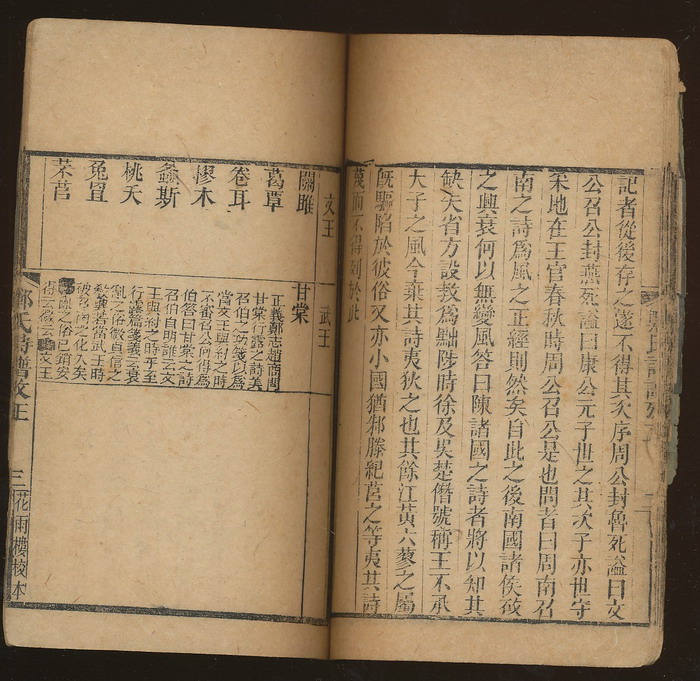 記者從後存之遂不得其次序周公封魯死謚曰文
公召公封燕死謚曰康公元子世之其次子亦世守
采地在王官春秋時周公召公是也問者曰周南召
南之詩爲風之正經則然矣自此之後南國諸侯政
之興衰何以無變風答曰陳諸國之詩者將以知其
缺失省方設教爲黜陟時徐及吳楚僭號稱王不承
天子之風今棄其詩夷狄之也其餘江黃六蓼之屬
既驅陷於彼俗又亦小國猶邾滕紀莒之等夷其詩
蔑而不得列於此
文王
武王
關雎
葛覃
卷耳
樛木
螽斯
桃夭
兔罝
芣苢
甘棠
正義鄭志趙商問
甘棠行露之詩美
召伯之功箋以爲
當文王與紂之時
不審召公何得爲
伯答曰甘棠之詩
召伯自明誰云文
王與紂之時乎至
行露篇箋義云衰
亂之俗微貞信之
教興若當武王時
被召南之化久矣
衰亂之俗已銷安
得云微云文王
鄭氏詩譜文王
三
花雨樓校本